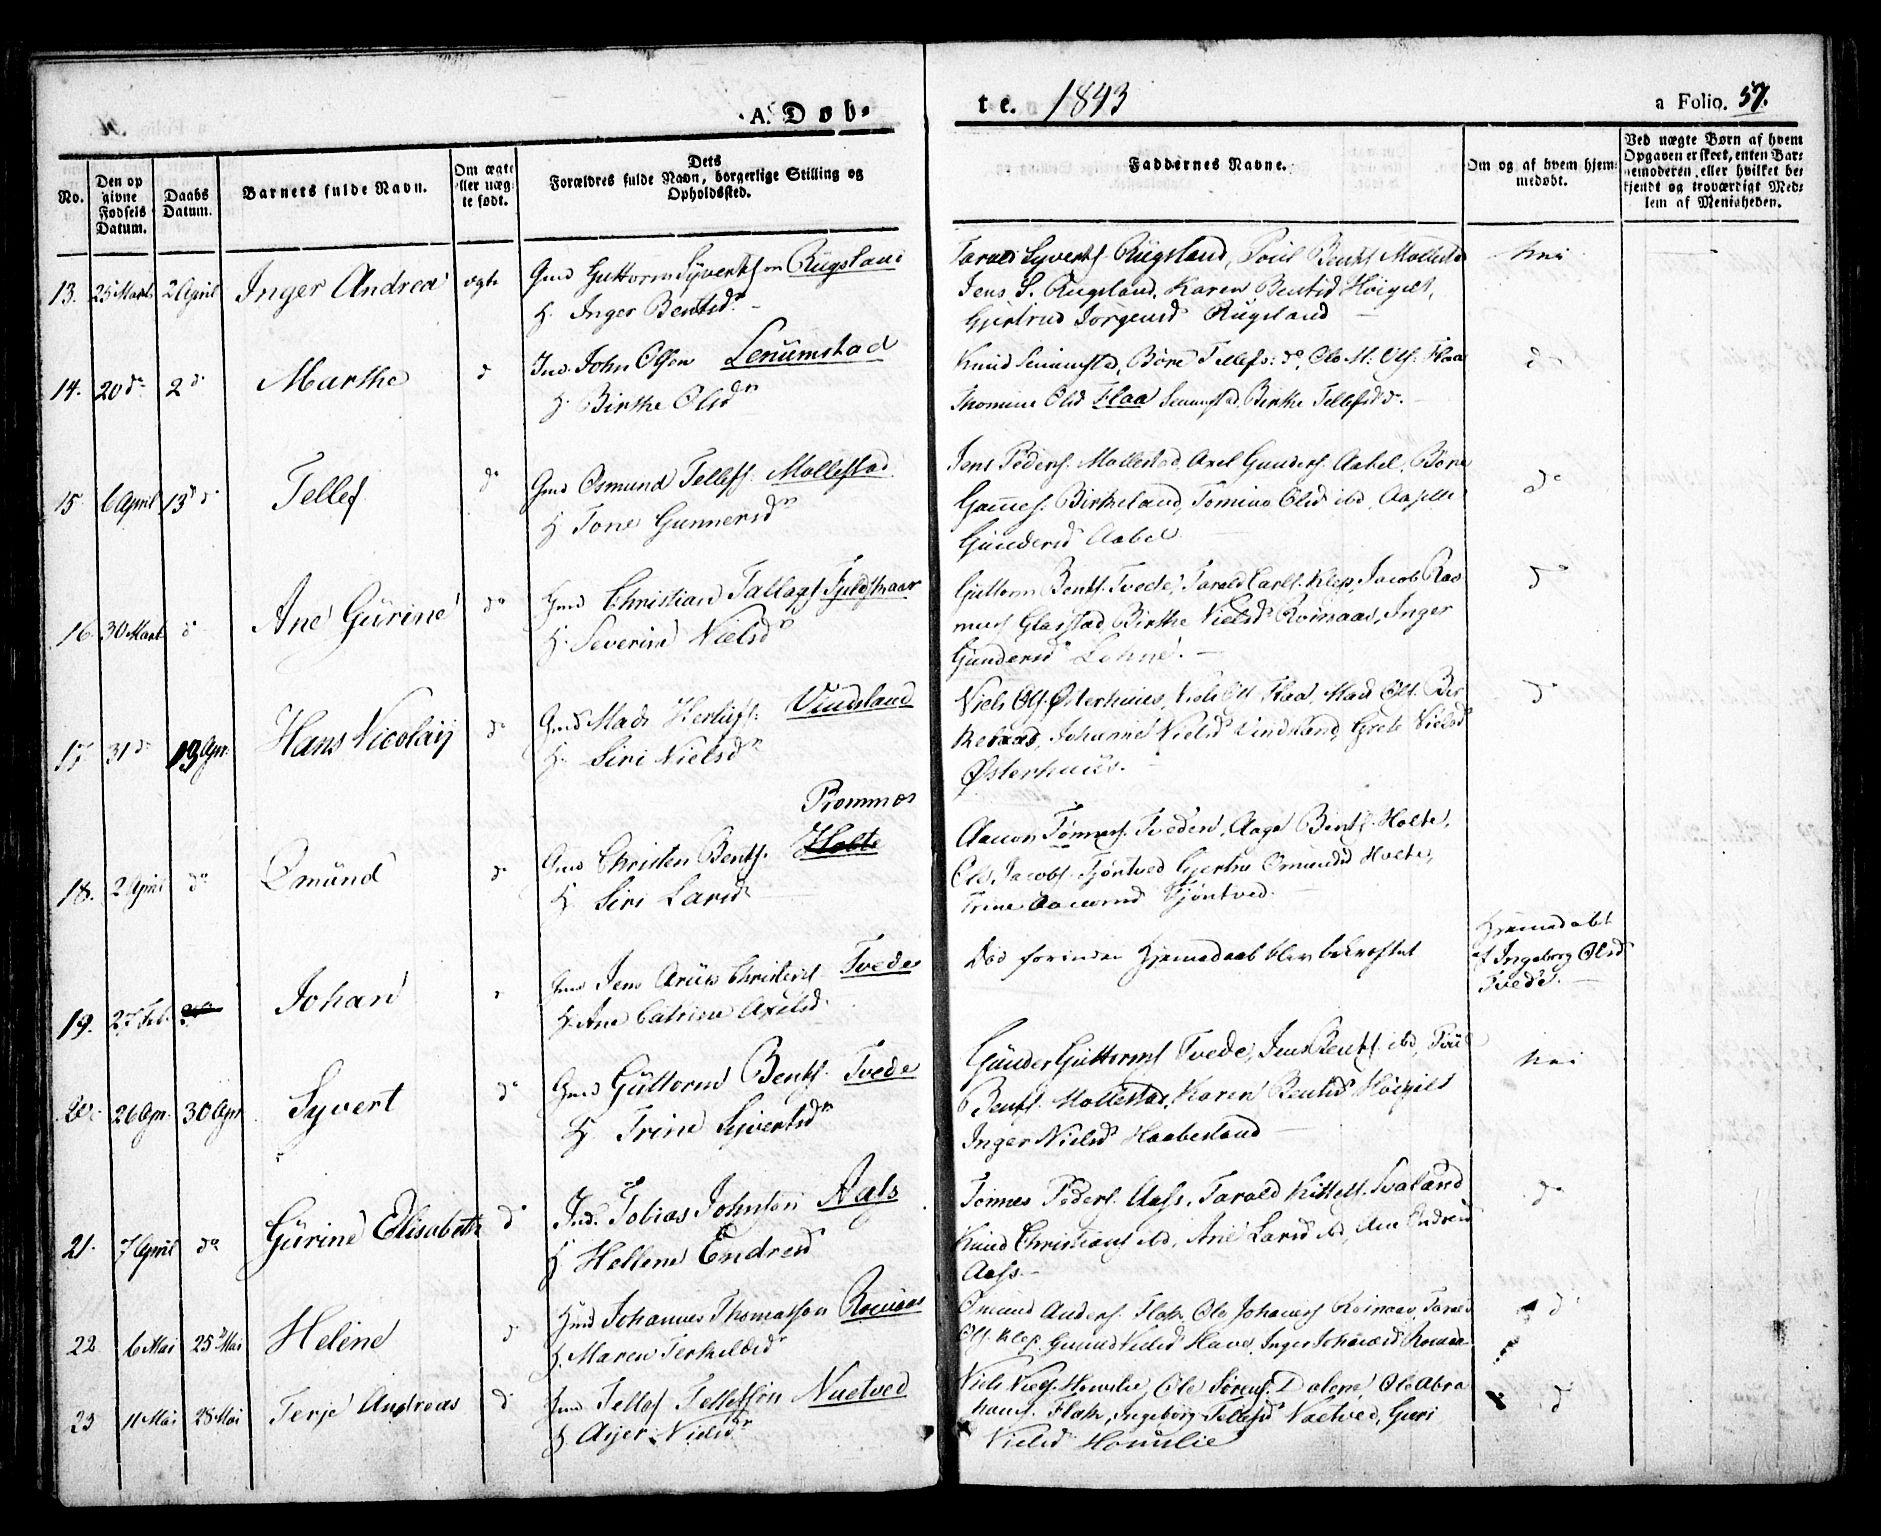 A. Døb-
te. 1843
a Folio. 57.
No.
Den op
givne
Fødsels
Datum.
Daabs
Datum.
Barnets fulde Navn.
Om ægte
eller uæg-
te født.
Dets
Forældres fulde Navn, borgerlige Stilling og
Opholdssted.
Faddernes Navne.
Om og af hvem hjem-
medøbt.
Ved uægte Børn af hvem
Opgaven er skeet, enten Bar-
nemoderen, eller hvilket be-
kjendt og troværdigt Med-
lem af Menigheden.
13. 25 Marts 2 April Inger Andrea ægte Gmd Guttorm Syvertsøn Rugsland
H. Inger Bentsd.
Tarald Syverts. Rugsland, Poul Bents. Mollestad
Jens S. Rugsland, Karen Bentsd Høigilt,
Gjertrud Jørgensd Rugsland
nei
14. 20 do 2 d Marthe d Ind. John Olsen Senumstad
H. Birthe Olsd
Knud Senumstad, Børe Tellefs: do, Ole
Thomine Olsd Flaa Senumstad, Birthe Tellefsd d.
do
15 6 April 13 d Tellef do Gmd Osmund Tellefs. Mollestad
H Tone Gunnersd
Jens Peders. Mollestad, Axel Gunders. Aabel, Børe
Birkeland, Tomine Olsd ibd,
Gundersd Aabel
do
16. 30 Marts d Ane Gurine do Gmd Christian Tallags.
H. Severine Nielsd
Guttorm Bents. Tvede, Tarald Carls. Klep, Jacob Ras
mus Glastad, Birthe Nielsd Roinaas, Inger
Gundersd Lohne.
do
17 31 do 13 Apr. Hans Nicolaij do Gmd Mads Herlufs: Vindsland
H. Siri Nielsd
Niels Ols. Østerhuus, Niels Ols Flaa, Mads Ols. Bir
Johanne Nielsd Vindsland, Grete Nielsd
Østerhuus.
do
18. 2 April do Osmund do Gmd Christen Bents. Holte
H. Siri Larsd
Tønnes. Tveden, Aage Bents. Holte,
Ole Jacobs. Fjøntved Osmundsd Holte,
Trine Fjøntved
19. 27 Feb. Johan Gmd Jens Christens Tvede
H. Ane Catrine Axelsd
Død forinden Hjemmedaab blev bekræftet
Hjemmedøbt
af Ingeborg Olsd
Tvede.
20. 26 Apr. 30 Apr Syvert do Gmd Guttorm Bents. Tvede
H. Trine Syvertsd
Gunder Guttorms Tvede, Jens Bents. ibd,
Bents. Mollestad, Karen Bentsd Høigilt
Inger Nielsd Haabesland
nei
21. 7 April do Gurine Elisabeth d Ind. Tobias Johnsøn Aas
H Hellene Endresd
Tønnes Peders. Aass. Tarald Kittels. Svaland
Knud Christians ibd, Ane Larsd ibd, Ane Andresd
Aass.
do
22 6 Mai 25 Mai Helene d Gmd Johannes Thomassøn Roinaas
H. Maren Terkelsd
Osmund Anders. Flak, Ole Johannes. Roinaas, Tarald
Ols. Klep. Gunnild Nielsd Have, Inger
d
23 11 Mai 28 Mai Terje Andreas d Gmd Tellef Tellefsøn Nuetved
H Nielsd
Niels Niels. Homelie, Ole Sørens. Dalene, Ole Abra
hams. Flak, Ingeborg Tellefsd Nuetved, Guri
Nielsd Homelie
d